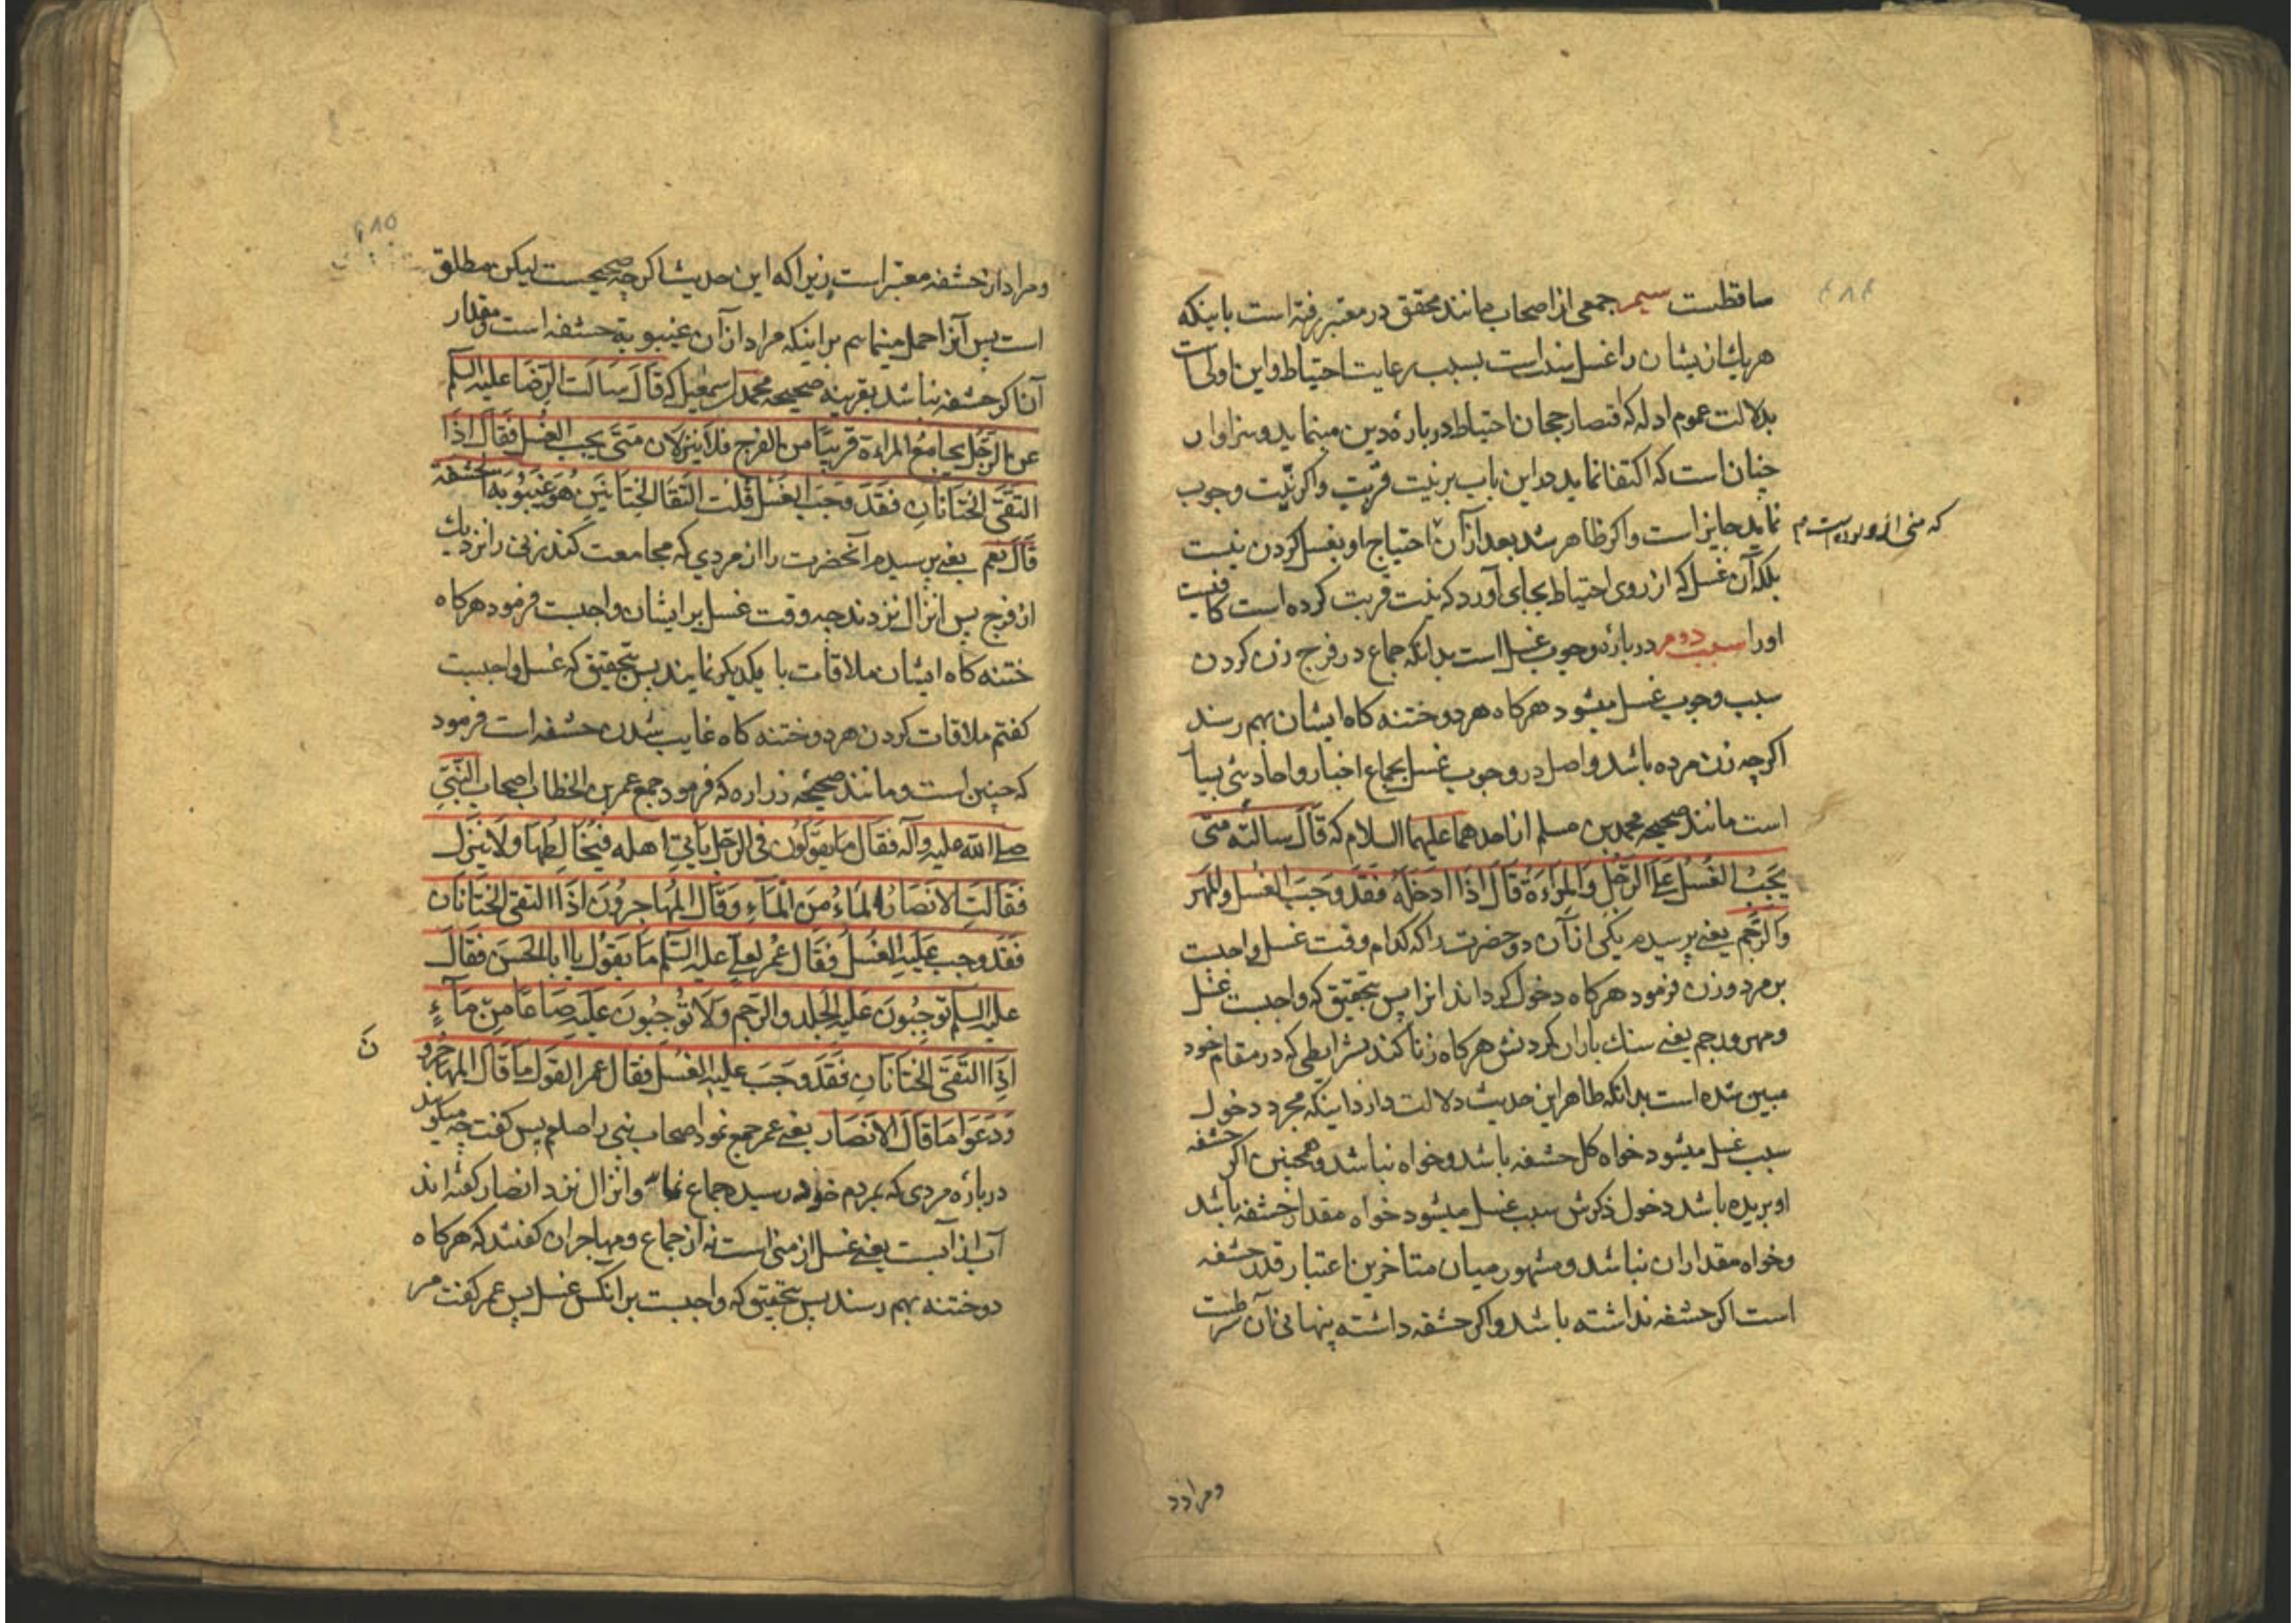 ساقطست سیم جمعی از اصحاب مانند محقق در معتبر رفته است باینکه
هر یك از ایشان را غسل سنت است بسبب رعایت احتیاط و این اولی است
بدلالت عموم ادله که اقتضا رجحان احتیاط در باره دین مینماید و سزاوار
چنان است که اکتفا نماید در این باب بر نیت قربت و اکر نیت وجوب
نماید جایز است و اکر ظاهر شد بعد از آن احتیاج او بغسل کردن نیست
که منی از او بوده است
بلکه آن غسل که از روی احتیاط بجای آورد که نیت قربت کرده است کافیست
او را سبب دوم در باره وجوب غسل است بدانکه جماع در فرج زن کردن
سبب وجوب غسل میشود هر کاه هر دو ختنه کاه ایشان بهم رسند
اکر چه زن مرده باشد و اصل در وجوب غسل بجماع اخبار و احادیثی بسیا
است مانند صحیحه محمد بن مسلم از احدهما علیهما السلام که قَالَ سالته متی
یَجِبُ الغُسلُ عَلَی الرَّجُلِ وَالمَرْاءَةِ قَالَ اذَا ادخَلَهُ فَقَد وَجَبَ الغُسلُ والمَهر
وَالرَّجم یعنی پرسیدم یکی از آن دو حضرت را که کدام وقت غسل واجبست
بر مرد و زن فرمود هر کاه دخول کرداند انرا پس بتحقیق که واجبست غسل
و مهر و رجم یعنی سنك باران کردنش هر کاه زنا کند بشرایطی که در مقام خود
مبین شده است بدانکه ظاهر این حدیث دلالت دارد اینکه مجرد دخول
سبب غسل میشود خواه کل حشفه باشد و خواه نباشد و همچنین اکر حشفه
او بریده باشد دخول ذکرش سبب غسل میشود خواه مقدار حشفه باشد
و خواه مقدار ان نباشد و مشهور میان متاخرین اعتبار قدر حشفه
است اکر حشفه نداشته باشد و اکر حشفه داشته پنهانی آن شرطست
و مراد ازد
و مراد از حشفه معتبر است زیرا که این حدیث اکر چه صحیحست لیکن مطلق
است پس آنرا حمل مینمایم بر اینکه مراد از آن غیبوبة حشفه است و مقدار
آن اکر حشفه نباشد بقرینه صحیحه محمد اسمعیل که قَالَ سَاَلتُ الرِّضَا علیه السلم
عن الرَّجُلِ یجامعُ المراءة قریبًا من الفرج فلا ینزلان مَتَی یجب الغُسل فَقَالَ اذَا
التَقَی الختَانَانِ فَقَد وَجَبَ الغُسل قُلت التَقَا الختَانَینِ هُوَ غَیبُوبَة الحَشَفَة
قَالَ نعم یعنی پرسیدم آنحضرت را از مردی که مجامعت کند زنی را نزدیك
از فرج پس انزال نزدند چه وقت غسل بر ایشان واجبست فرمود هر کاه
ختنه کاه ایشان ملاقات با یکدیکر نمایند پس بتحقیق که غسل واجبست
کفتم ملاقات کردن هر دو ختنه کاه غایب شدن حشفه است فرمود
که چنین است و مانند صحیحه زراره که فرمود جمع عمر بن الخطاب اصحاب النَّبیّ
صلی الله علیه وآله فقال ما تقولون فی الرّجل یأتی اهله فیُخَالِطُها ولا ینزل
فقالت الانصَارُ المَاءُ مِنَ المَاءِ وَقَالَ المُهَاجِرُونَ اذَا التقی الختَانَان
فَقَد وجب عَلَیهِ الغُسلُ فقَالَ عُمَر لعلیّ علیه السّلم مَا یَقُولُ یا ابا الحَسَن فقَالَ
علیه السلم توجِبُونَ عَلَیهِ الجَلد والرّجم وَلَا تُوجِبُونَ عَلَیهِ صَاعًا مِن مَآءٍ
اِذَا التَقَی الختَانَانِ فَقَد وَجَبَ علیهِ الغُسل فقال عمر القول مَا قَالَ المهاجرو
نَ
وَدَعَوا مَا قَالَ الانصَار یعنی عمر جمع نمود اصحاب نبی را صلعم پس کفت چه میکویند
در باره مردی که بمردم خود رسید جماع نماید و انزال نزد انصار کفته اند
آب از آبست یعنی غسل از منی است نه از جماع و مهاجران کفتند که هر کاه
دو ختنه بهم رسند پس بتحقیق که واجبست بر انکس غسل پس عمر کفت مر